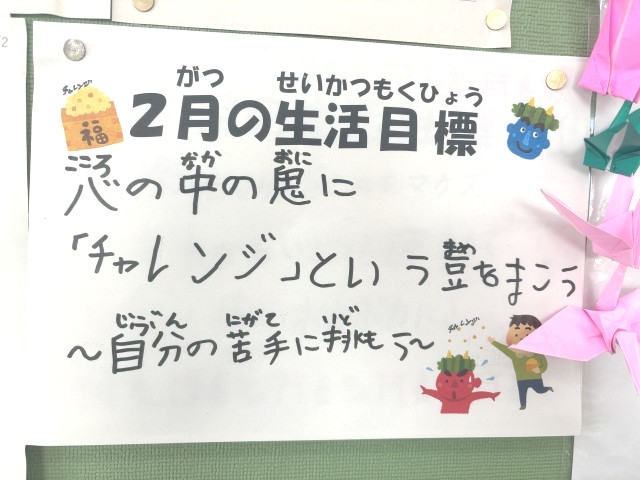 /2
チャレンジ
福
がつ せいかつもくひょう
2月の生活目標
こころ なか おに
心の中の鬼に
まめ
「チャレンジ」という豆をまこう
じぶん にがて いど
～自分の苦手に挑もう～
チャレンジ